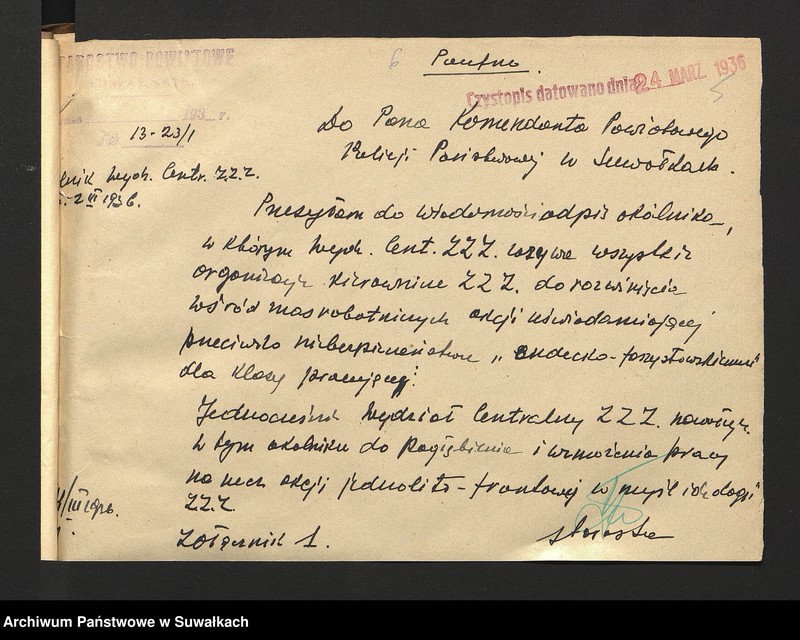 STAROSTWO POWIATOWE
6
Poufne.
Czystopis datowano dnia 24 MARZ. 1936
5
193 r.
13-23/1
Do Pana Komendanta Powiatowego
Policji Państwowej w Suwałkach.
Wydz. Centr. Z.Z.Z.
2 III 1936.
Przesyłam do wiadomości odpis okólnika,
w którym Wydz. Cent. ZZZ. wzywa wszystkie
organizacje kierownicze ZZZ. do rozwinięcia
wśród mas robotniczych akcji uświadamiającej
przeciwko niebezpieczeństwu „endecko-faszystowskiemu"
dla klasy pracującej.
Jednocześnie Wydział Centralny ZZZ. nawołuje
w tym okólniku do pogłębienia i wzmożenia pracy
na rzecz akcji jednolito-frontowej w myśl ideologii
ZZZ.
/III 1936.
Załącznik 1.
Starosta
Archiwum Państwowe w Suwałkach